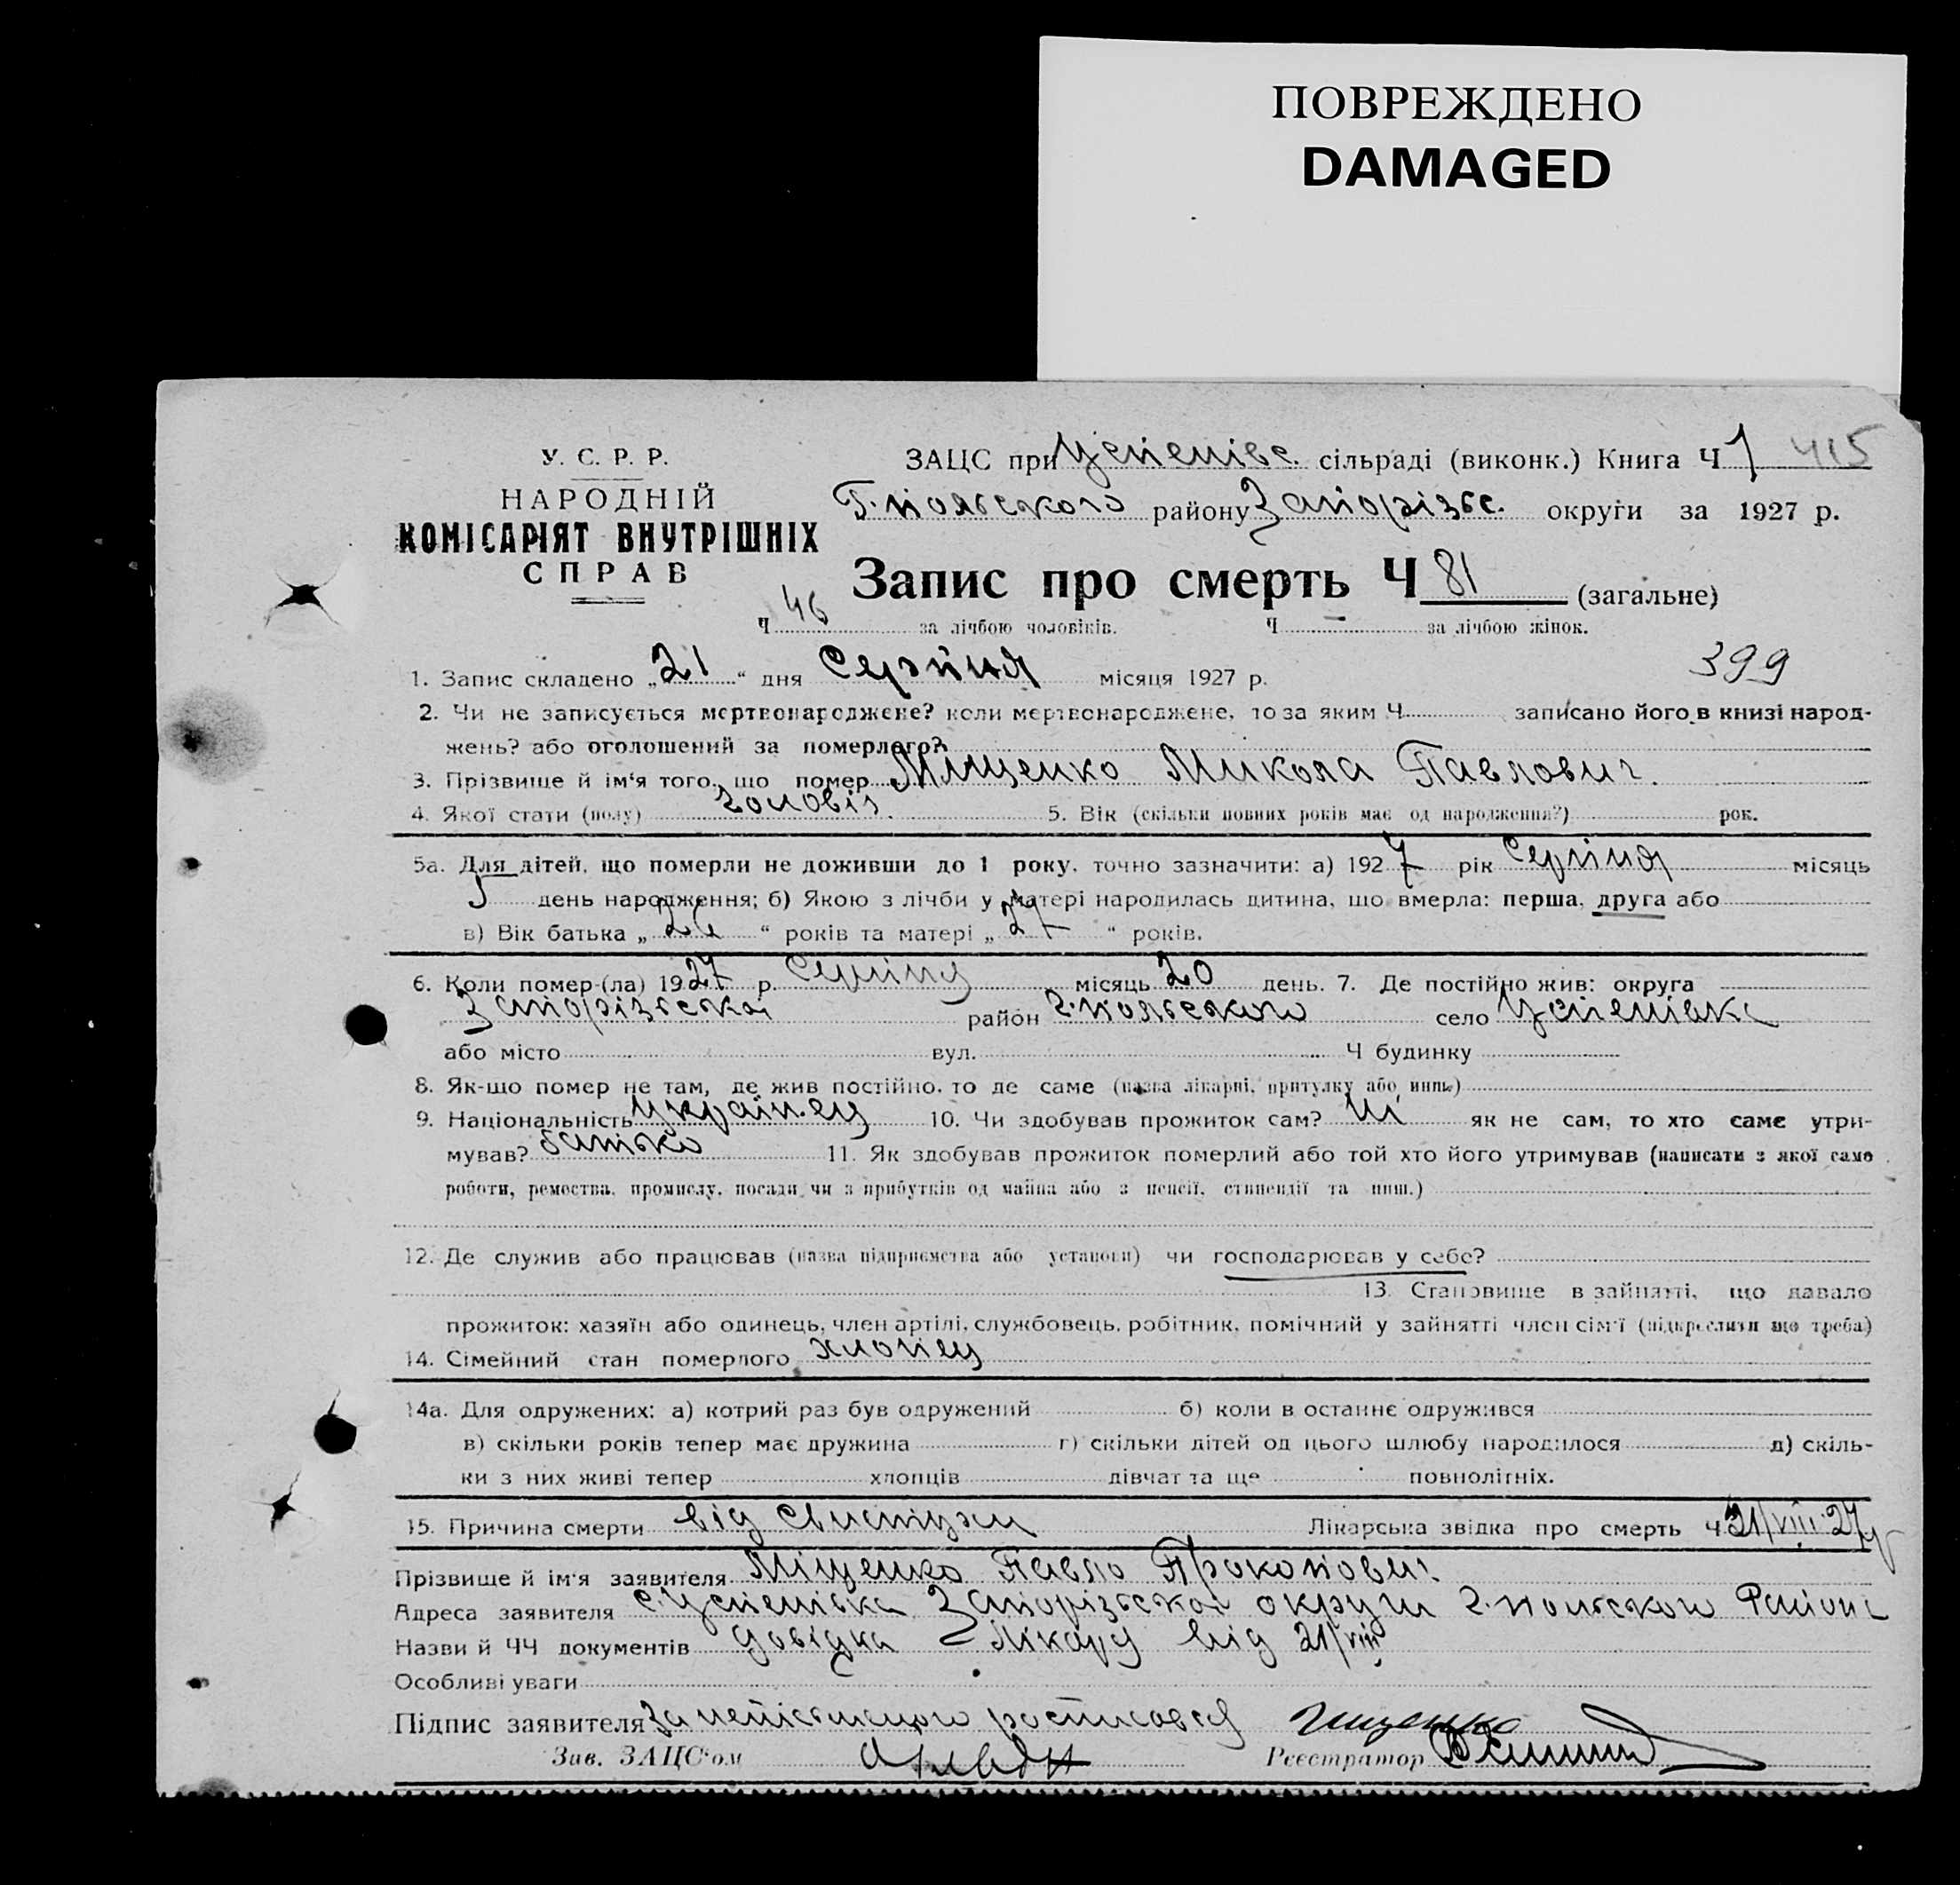 ПОВРЕЖДЕНО
DAMAGED
У. С. Р. Р.
НАРОДНІЙ
КОМІСАРІЯТ ВНУТРІШНІХ
СПРАВ
ЗАЦС при Успенівс. сільраді (виконк.) Книга Ч 1 415
Г.польського району Запорізьс. округи за 1927 р.
Запис про смерть Ч 81 (загальне)
Ч 46 за лічбою чоловіків. Ч – за лічбою жінок.
399
1. Запис складено „21“ дня Серпня місяця 1927 р.
2. Чи не записується мертвонароджене? коли мертвонароджене, то за яким Ч записано його в книзі народ-
жень? або оголошений за померлого?
3. Прізвище й ім'я того, що помер Міщенко Микола Павлович.
4. Якої стати (полу) чоловіч. 5. Вік (скільки повних років має од народження?) рок.
5а. Для дітей, що померли не доживши до 1 року, точно зазначити: а) 1927 рік Серпня місяць
5 день народження; б) Якою з лічби у матері народилась дитина, що вмерла: перша, друга або
в) Вік батька „26“ років та матері „27“ років.
6. Коли помер-(ла) 1927 р. Серпня місяць 20 день. 7. Де постійно жив: округа
Запорізська район Г.польського село Успенівка
або місто вул. Ч будинку
8. Як-що помер не там, де жив постійно, то де саме (назва лікарні, притулку або инше)
9. Національність українец 10. Чи здобував прожиток сам? ні як не сам, то хто саме утри-
мував? батько 11. Як здобував прожиток померлий або той хто його утримував (написати з якої саме
роботи, ремества, промислу, посади чи з прибутків од майна або з пенсії, стипендії та инш.)
12. Де служив або працював (назва підприємства або установи) чи господарював у себе?
13. Становище в зайнятті, що давало
прожиток: хазяїн або одинець, член артілі, службовець, робітник, помічний у зайнятті член сім'ї (підкреслити що треба)
14. Сімейний стан померлого хлопец
14а. Для одружених: а) котрий раз був одружений б) коли в останнє одружився
в) скільки років тепер має дружина г) скільки дітей од цього шлюбу народилося д) скіль-
ки з них живі тепер хлопців дівчат та ще повнолітніх.
15. Причина смерти від Лікарська звідка про смерть Ч 21/VIII 27р
Прізвище й ім'я заявителя Міщенко Павло Прокопович
Адреса заявителя с. Успенівка Запорізської округи Г.польського Району
Назви й ЧЧ документів довідка Лікаря від 21/VIII
Особливі уваги
Підпис заявителя За неписьмецого росписався
Зав. ЗАЦС'ом Реєстратор